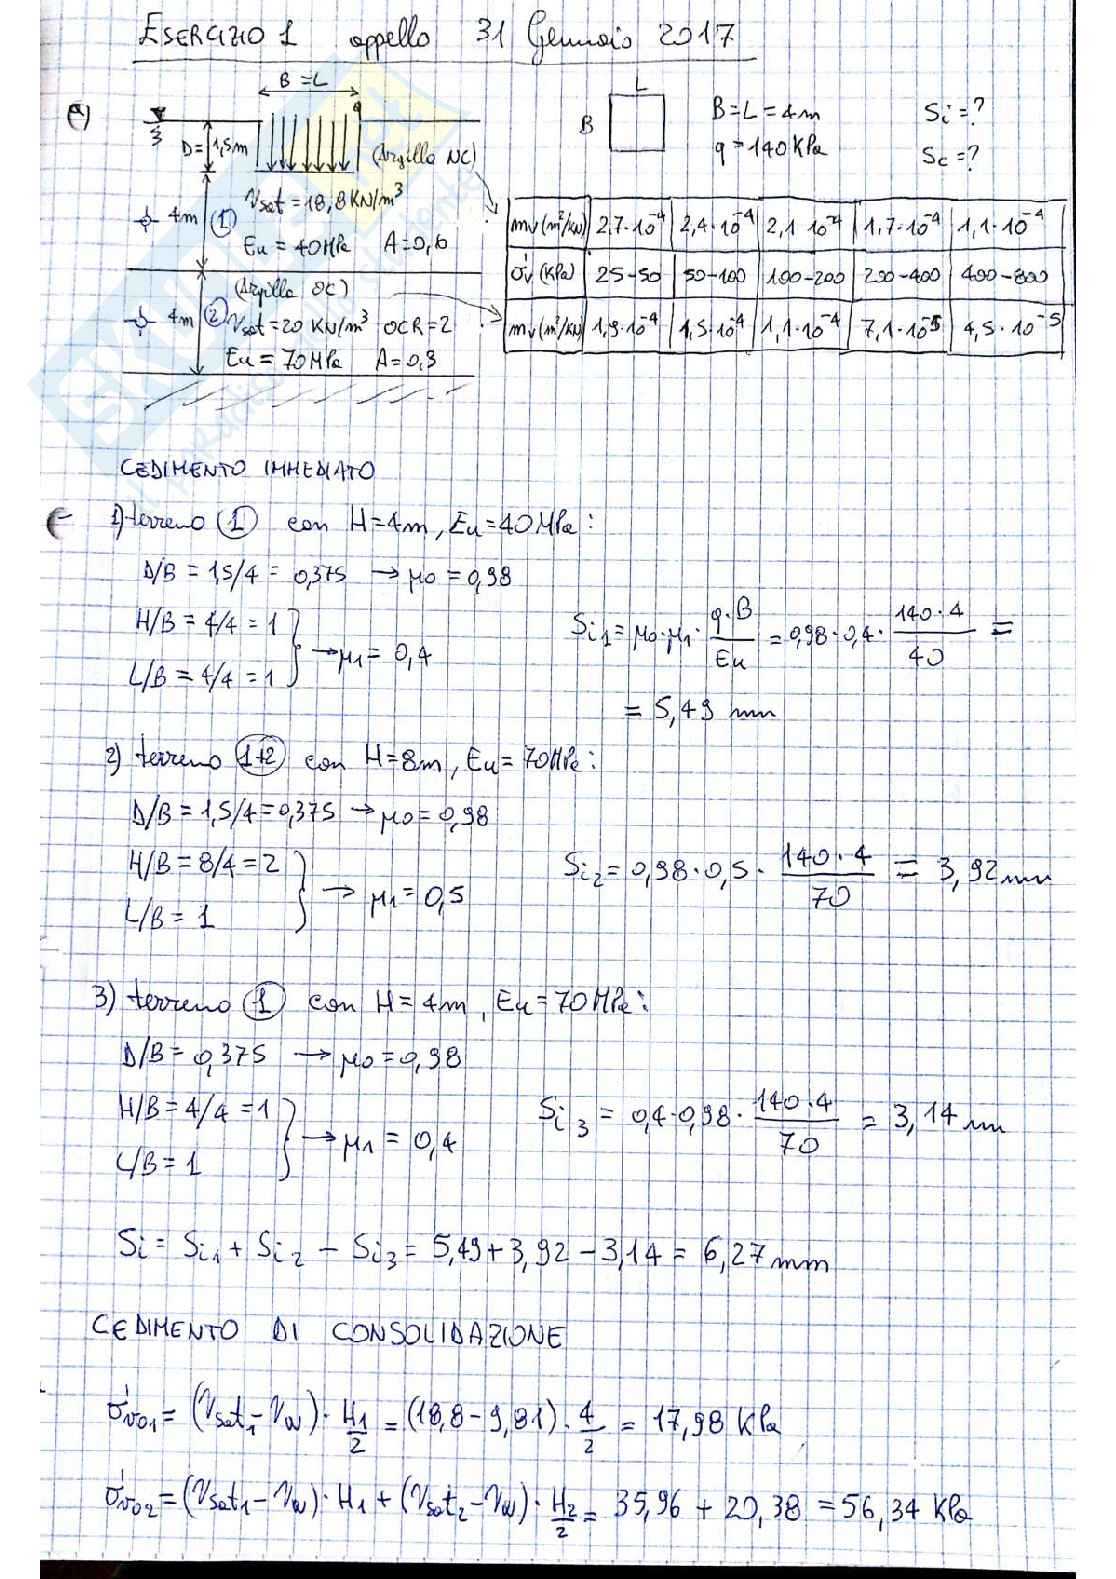 ESERCIZIO 1 appello 31 Gennaio 2017
a)
B = L
q
D = 1,5m
(Argilla NC)
4m 1 γsat = 18,8 KN/m³
Eu = 40 MPa A = 0,6
(Argilla OC)
4m 2 γsat = 20 KN/m³ OCR = 2
Eu = 70 MPa A = 0,3
L
B
B = L = 4m
q = 140 KPa
Si = ?
Sc = ?
mv (m²/kN) 2,7·10⁻⁴ 2,4·10⁻⁴ 2,1·10⁻⁴ 1,7·10⁻⁴ 1,1·10⁻⁴
σ'v (KPa) 25-50 50-100 100-200 200-400 400-800
mv (m²/kN) 1,9·10⁻⁴ 1,5·10⁻⁴ 1,1·10⁻⁴ 7,1·10⁻⁵ 4,5·10⁻⁵
CEDIMENTO IMMEDIATO
1) terreno 1 con H = 4m, Eu = 40 MPa :
D/B = 1,5/4 = 0,375 → μ0 = 0,98
H/B = 4/4 = 1
L/B = 4/4 = 1 } → μ1 = 0,4
Si1 = μ0·μ1· q·B/Eu = 0,98·0,4· 140·4/40 =
= 5,49 mm
2) terreno 1+2 con H = 8m, Eu = 70 MPa :
D/B = 1,5/4 = 0,375 → μ0 = 0,98
H/B = 8/4 = 2
L/B = 1 } → μ1 = 0,5
Si2 = 0,98·0,5· 140·4/70 = 3,92 mm
3) terreno 1 con H = 4m, Eu = 70 MPa :
D/B = 0,375 → μ0 = 0,98
H/B = 4/4 = 1
L/B = 1 } → μ1 = 0,4
Si3 = 0,4·0,98· 140·4/70 = 3,14 mm
Si = Si1 + Si2 - Si3 = 5,49 + 3,92 - 3,14 = 6,27 mm
CEDIMENTO DI CONSOLIDAZIONE
σ'v01 = (γsat1 - γw) · H1/2 = (18,8 - 9,81) · 4/2 = 17,98 KPa
σ'v02 = (γsat1 - γw) · H1 + (γsat2 - γw) · H2/2 = 35,96 + 20,38 = 56,34 KPa